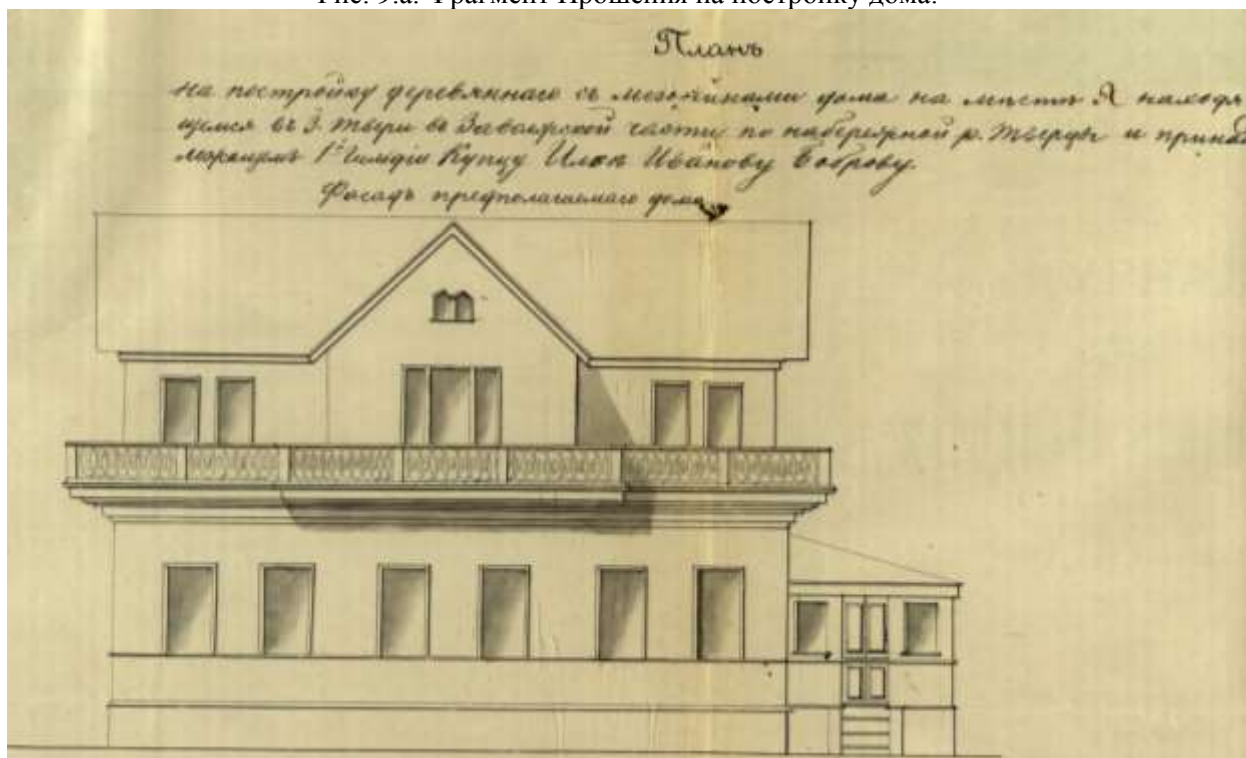 Рис. 9.а. Фрагмент Прошения на постройку дома.
Планъ
на постройку деревяннаго съ мезонинами дома на мѣстѣ А находя
щемся въ г. Твери въ Заволжской части по набережной р. Тверцы и принад
лежащемъ 1й Гильдіи Купцу Ильѣ Иванову Боброву.
Фасадъ предполагаемаго дома